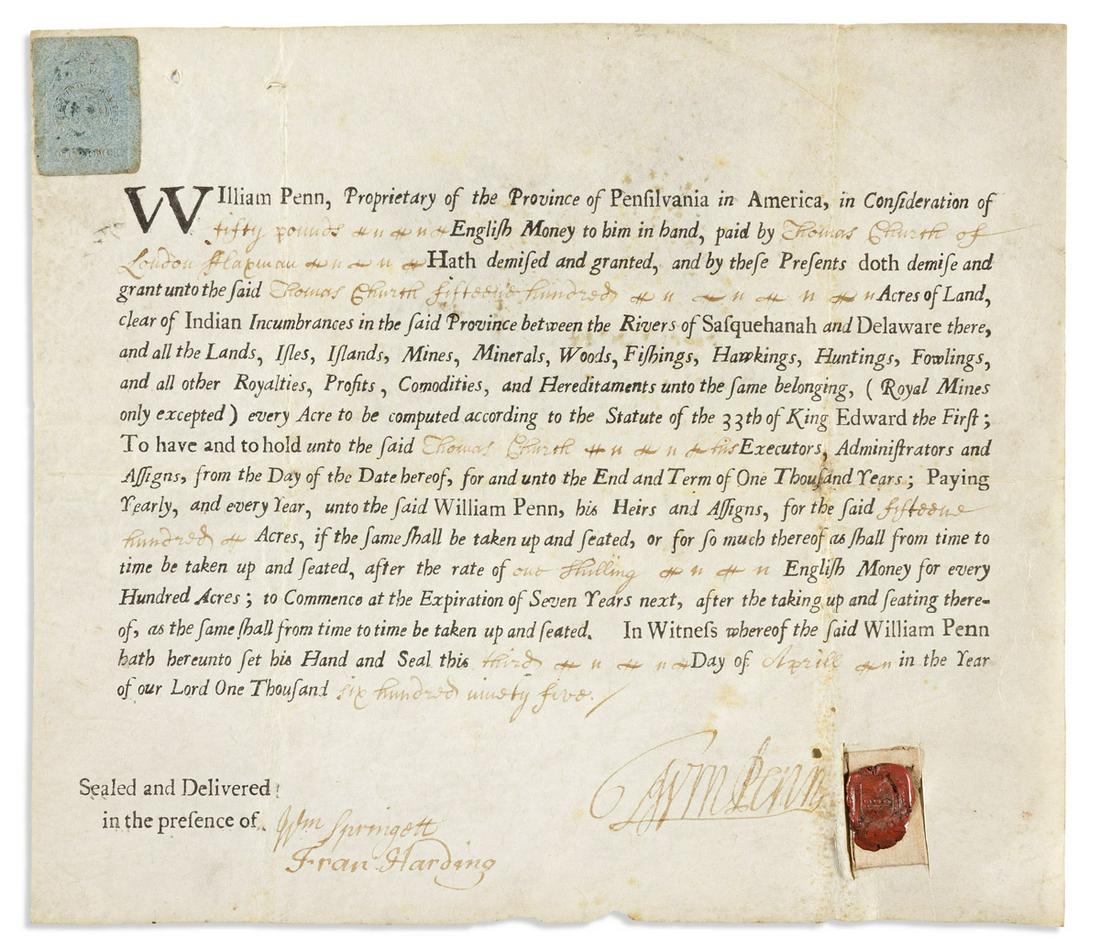 WIlliam Penn, Proprietary of the Province of Penſilvania in America, in Conſideration of
fifty pounds Engliſh Money to him in hand, paid by Thomas Church of
London Hapman Hath demiſed and granted, and by theſe Preſents doth demiſe and
grant unto the ſaid Thomas Church fifteene hundred Acres of Land,
clear of Indian Incumbrances in the ſaid Province between the Rivers of Saſquehanah and Delaware there,
and all the Lands, Iſles, Iſlands, Mines, Minerals, Woods, Fiſhings, Hawkings, Huntings, Fowlings,
and all other Royalties, Profits, Comodities, and Hereditaments unto the ſame belonging, (Royal Mines
only excepted) every Acre to be computed according to the Statute of the 33th of King Edward the Firſt;
To have and to hold unto the ſaid Thomas Church his Executors, Adminiſtrators and
Aſſigns, from the Day of the Date hereof, for and unto the End and Term of One Thouſand Years; Paying
Yearly, and every Year, unto the ſaid William Penn, his Heirs and Aſſigns, for the ſaid fifteene
hundred Acres, if the ſame ſhall be taken up and ſeated, or for ſo much thereof as ſhall from time to
time be taken up and ſeated, after the rate of one Shilling Engliſh Money for every
Hundred Acres; to Commence at the Expiration of Seven Years next, after the taking up and ſeating there-
of, as the ſame ſhall from time to time be taken up and ſeated. In Witneſs whereof the ſaid William Penn
hath hereunto ſet his Hand and Seal this third Day of Aprill in the Year
of our Lord One Thouſand six hundred ninety five.
Wm Penn
Sealed and Delivered
in the preſence of
Wm Springett
Fran Harding